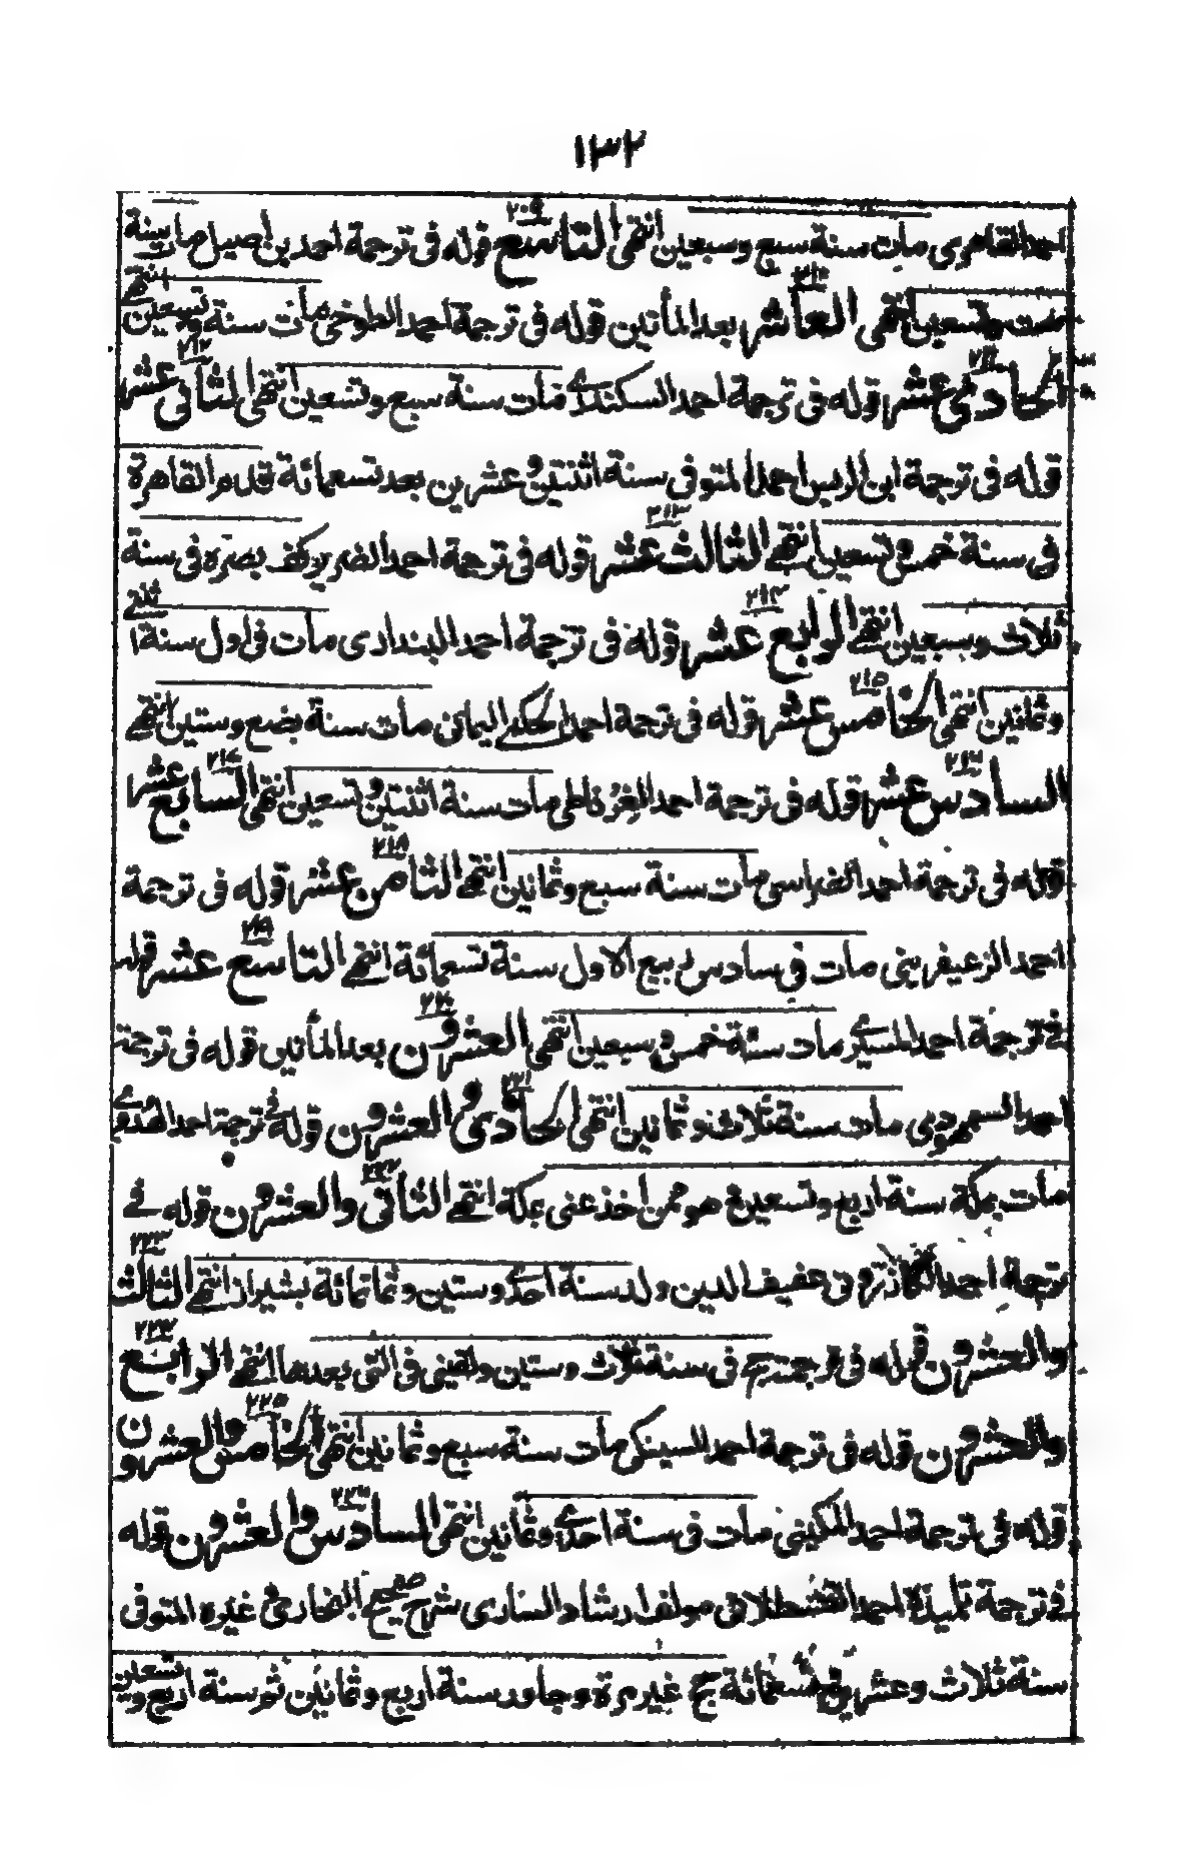 ١٣٢
احمد القاهرى مات سنة سبع وسبعين انتهى التاسع قوله فى ترجمة احمد بن اصيل مات سنة
ست وتسعين انتهى العاشر بعد المأتين قوله فى ترجمة احمد الطوخى مات سنة وتسعين انتهى
الحادى عشر قوله فى ترجمة احمد السكندرى مات سنة سبع وتسعين انتهى الثانى عشر
قوله فى ترجمة ابن الريس احمد المتوفى سنة اثنتين وعشرين بعد تسعمائة قدم القاهرة
فى سنة خمس وتسعين انتهى الثالث عشر قوله فى ترجمة احمد الضرير كف بصره فى سنة
ثلاث وسبعين انتهى الرابع عشر قوله فى ترجمة احمد البندارى مات فى اول سنة ثلث
وثمانين انتهى الخامس عشر قوله فى ترجمة احمد الحكمى اليمانى مات سنة بضع وستين انتهى
السادس عشر قوله فى ترجمة احمد الغرناطى مات سنة اثنتين وتسعين انتهى السابع عشر
قوله فى ترجمة احمد الفراسى مات سنة سبع وثمانين انتهى الثامن عشر قوله فى ترجمة
احمد الزعيفرينى مات فى سادس ربيع الاول سنة تسعمائة انتهى التاسع عشر قوله
فى ترجمة احمد المسيرى مات سنة خمس وسبعين انتهى العشرون بعد المأتين قوله فى ترجمة
احمد السمهودى مات سنة ثلاث وثمانين انتهى الحادى والعشرون قوله فى ترجمة احمد
مات بمكة سنة اربع وتسعين وهو ممن اخذ عنى بمكة انتهى الثانى والعشرون قوله فى
ترجمة احمد الكازرونى عفيف الدين ولد سنة احدى وستين وثمانمائة بشيراز انتهى الثالث
والعشرون قوله فى ترجمته حج فى سنة ثلاث وستين ولقينى فى التى بعدها انتهى الرابع
والعشرون قوله فى ترجمة احمد السينكى مات سنة سبع وثمانين انتهى الخامس والعشرون
قوله فى ترجمة احمد المكينى مات فى سنة احدى وثمانين انتهى السادس والعشرون قوله
فى ترجمة تلميذه احمد القسطلانى مولف ارشاد السارى شرح صحيح البخارى وغيره المتوفى
سنة ثلاث وعشرين وتسعمائة حج غير مرة وجاور سنة اربع وثمانين ثم سنة اربع وتسعين